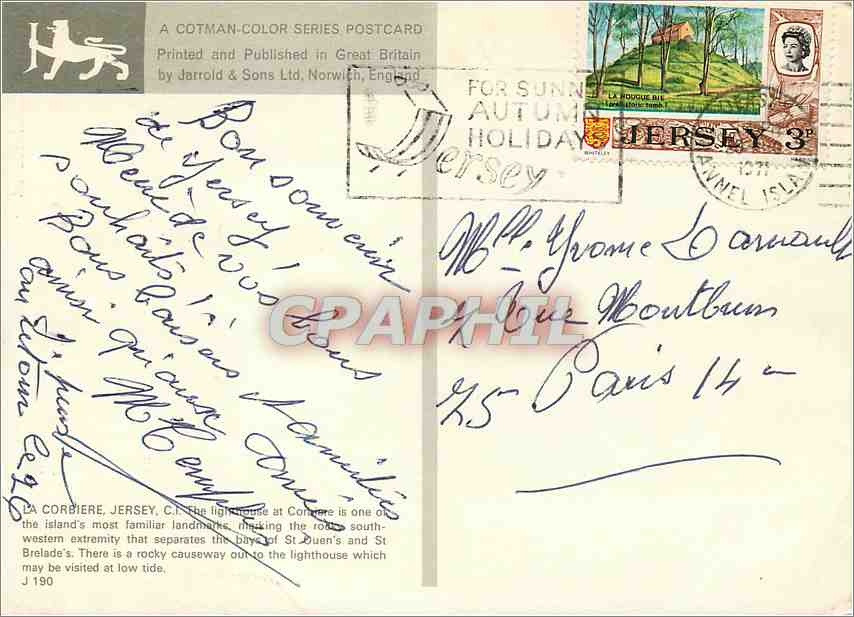 A COTMAN-COLOR SERIES POSTCARD
Printed and Published in Great Britain
by Jarrold & Sons Ltd, Norwich, England
FOR SUNNY
AUTUMN
HOLIDAYS
Jersey
LA HOUGUE BIE
(prehistoric tomb)
WHITELEY
JERSEY 3P
JERSEY
1971
CHANNEL ISLANDS
Bon souvenir
de Jersey !
Merci de vos bons
souhaits !
Bons baisers & amitiés
ainsi qu'aux
au retour le 26
Mlle Yvonne Darnault
Rue Montbrun
75 Paris 14
CPAPHIL
LA CORBIERE, JERSEY, C.I. The lighthouse at Corbiere is one of
the island's most familiar landmarks, marking the rocky south-
western extremity that separates the bays of St Ouen's and St
Brelade's. There is a rocky causeway out to the lighthouse which
may be visited at low tide.
J 190